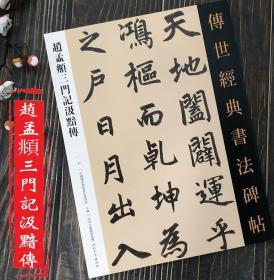 傳世經典書法碑帖
天地闔闢運乎
鴻樞而乾坤為
之戶日月出入
趙孟頫三門記汲黯傳
趙孟頫三門記汲黯傳